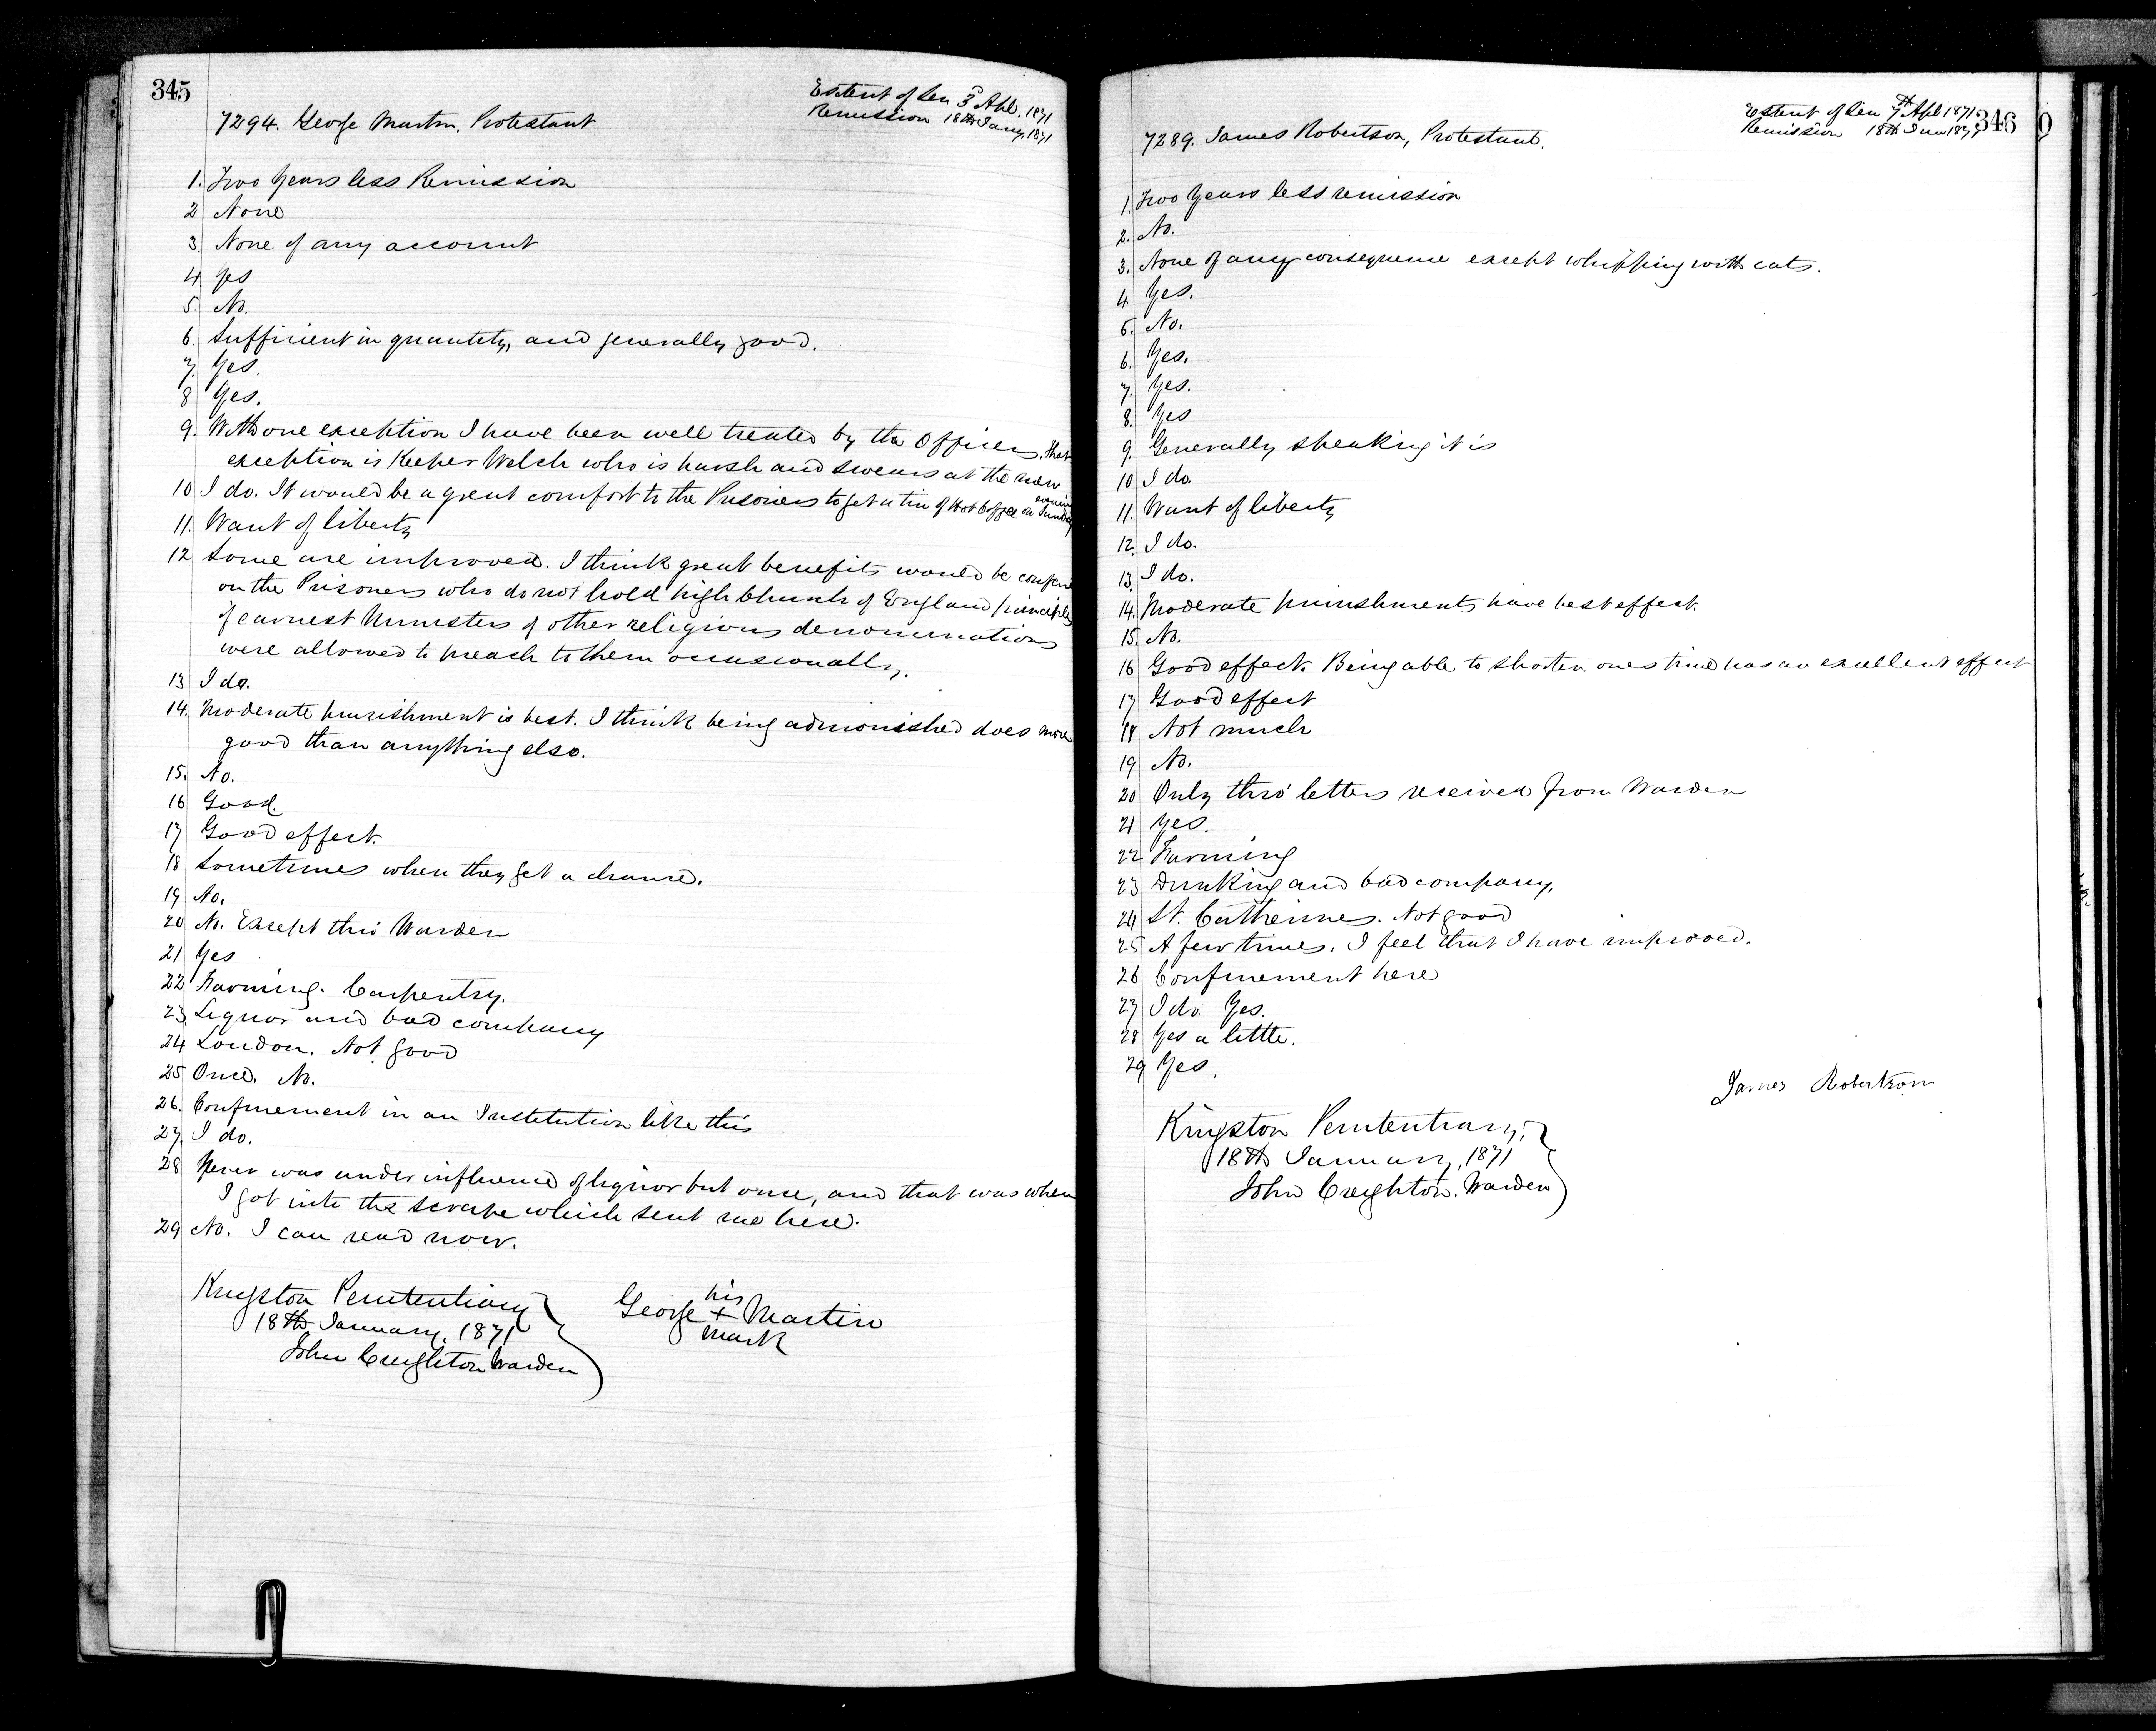 345
Extent of Sen 3 Apl. 1871
Remission 18th Jany 1871
7294. George Martin, Protestant
1. Two Years less Remission
2 None
3. None of any account
4 Yes
5. No.
6 Sufficient in quantity, and generally good.
7. Yes.
8 Yes.
9. With one exception I have been well treated by the Officers, that
exception is Keeper Welch who is harsh and swears at the men
10 I do. It would be a great comfort to the Prisoners to get a tin of Hot Coffee on Sunday evening
11. Want of liberty
12 Some are improved. I think great benefits would be
on the Prisoners who do not hold high Church of England principles
if earnest Ministers of other religious denominations
were allowed to preach to them occasionally.
13 I do.
14. Moderate punishment is best. I think being admonished does more
good than anything else.
15. No.
16 Good.
17 Good effect.
18 Sometimes when they get a chance.
19 No.
20 No. Except thro' Warden
21 Yes
22 Farming. Carpentry.
23. Liquor and bad company
24 London. Not good
25 Once. No.
26. Confinement in an Institution like this
27. I do.
28 Never was under influence of liquor but once, and that was when
I got into the scrape which sent me here.
29 No. I can read now.
Kingston Penitentiary
18th January, 1871
John Creighton Warden
his
George + Martin
mark
346
Extent of Sen 7th Apl 1871
Remission 18th Jan 1871
7289. James Robertson, Protestant.
1. Two Years less remission
2. No.
3. None of any consequence except whipping with cats.
4. Yes.
5. No.
6. Yes.
7. Yes.
8. Yes
9. Generally speaking it is
10 I do.
11. Want of liberty
12. I do.
13. I do.
14. Moderate punishments have best effect.
15. No.
16 Good effect. Being able to shorten ones time has an excellent effect
17 Good effect
18 Not much
19 No.
20 Only thro' letters received from Warden
21 Yes.
22 Farming
23 Drinking and bad company.
24 St. Catherines. Not good
25 A few times. I feel that I have improved.
26 Confinement here
27 I do. Yes.
28 Yes a little.
29 Yes.
James Robertson
Kingston Penitentiary,
18th January, 1871
John Creighton. Warden